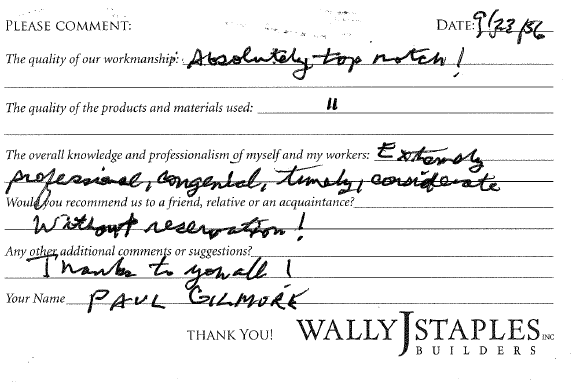 PLEASE COMMENT: DATE: 9/23/56
The quality of our workmanship: Absolutely top notch!
The quality of the products and materials used: "
The overall knowledge and professionalism of myself and my workers: Extremely
professional, congenial, timely, considerate
Would you recommend us to a friend, relative or an acquaintance?
Without reservation!
Any other additional comments or suggestions?
Thanks to you all!
Your Name PAUL GILMORE
THANK YOU! WALLY J STAPLES INC
BUILDERS